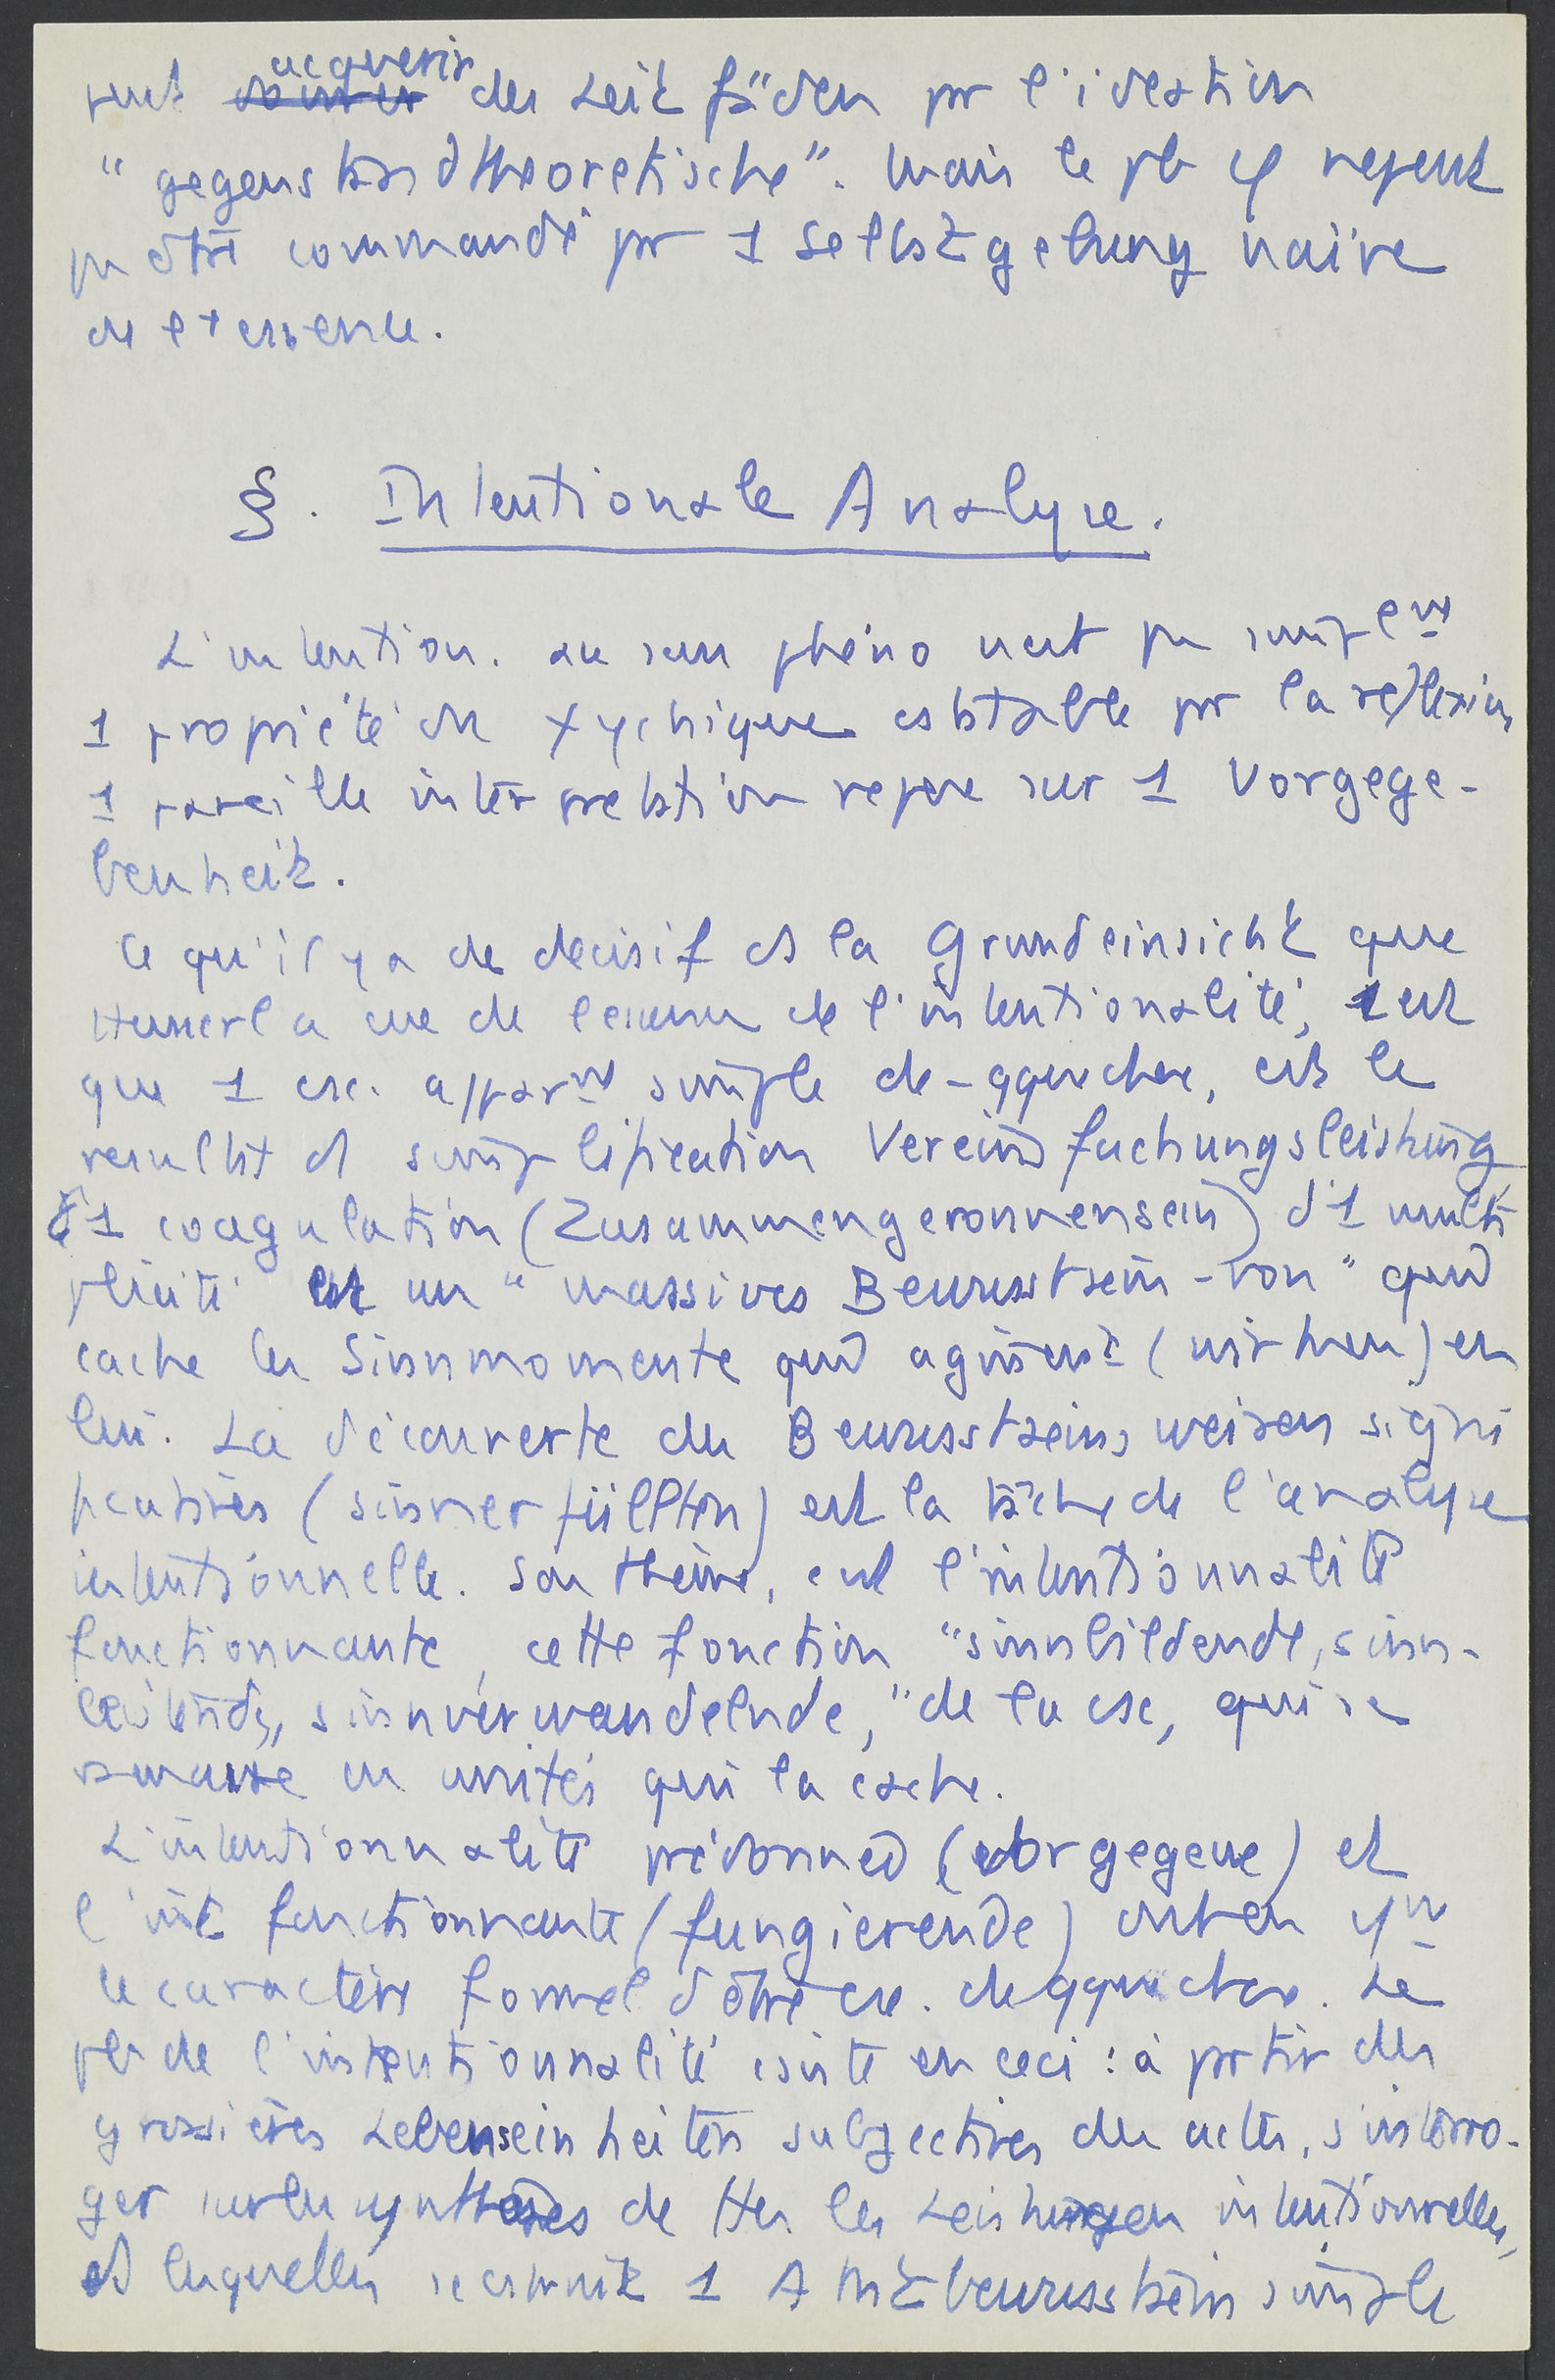 peut donner acquérir des Leitfäden pr l'idéation
"gegenstandtheoretische". Mais le pb φ ne peut
pas être commandé par 1 Selbstgebung naïve
de l' essence.
§. Intentionale Analyse.
L'intention. au sens phéno n'est pas simplemt
1 propriété du ψychique cstatable par la réflexion
1 pareille interprétation repose sur 1 Vorgege-
benheit.
Ce qu'il y a de décisif ds la Grundeinsicht que
Husserl a eue de l'essence de l'intentionalité, c'est
que 1 csc. apparmt simple de-qquechose, est le
résultat d simplification Vereinfachungsleistung
d'1 coagulation (Zusammengeronnensein) d'1 multi
plicité est un "massives Bewusstsein-von" qui
cache les Sinnmomente qui agissent (wirken) en
lui. La découverte des Bewusstseinsweisen signi
ficatives (sinnerfüllten) est la tâche de l'analyse
intentionnelle. Son thème, c'est l'intentionnalité
fonctionnante, cette fonction "sinnbildende, sinn-
leistende, sinnverwandelnde," de la csc, qui se
ramasse en unités qui la cache.
L'intentionnalité prédonnée (vorgegebene) et
l'int fonctionnante (fungierende) ont en
le caractère formel d'être csc. de qquechose. Le
pb de l'intentionnalité csiste en ceci : à partir des
grossières Lebenseinheiten subjectives des actes, s'interro-
ger sur les synthèses de ttes les Leistungen intentionnelles,
ds lesquelles se cstruit 1 Aktbewusstsein simple